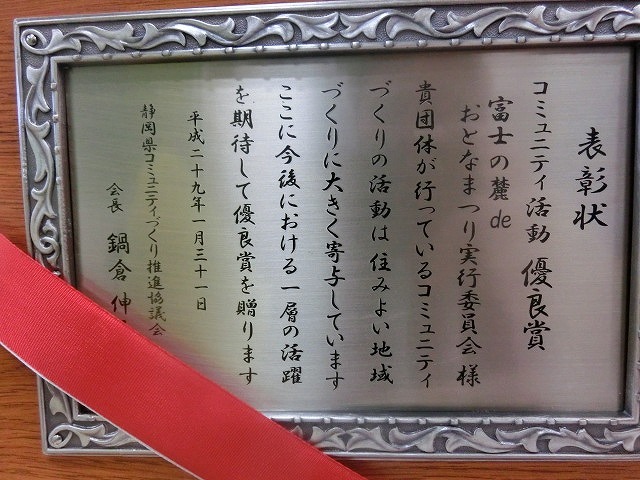 表彰状
コミュニティ活動 優良賞
富士の麓de
おとなまつり実行委員会様
貴団体が行っているコミュニティ
づくりの活動は住みよい地域
づくりに大きく寄与しています
ここに今後における一層の活躍
を期待して優良賞を贈ります
平成二十九年一月三十一日
静岡県コミュニティづくり推進協議会
会長 鍋倉伸